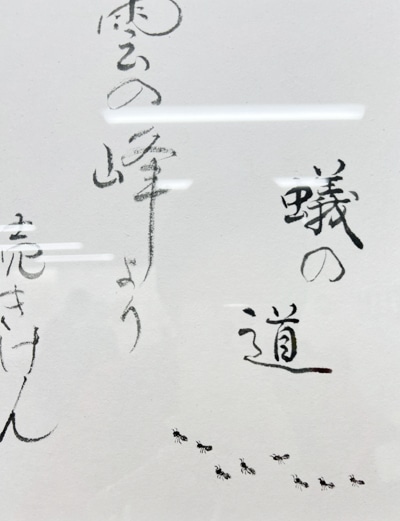 蟻の
道
雲の峰より
続きけん